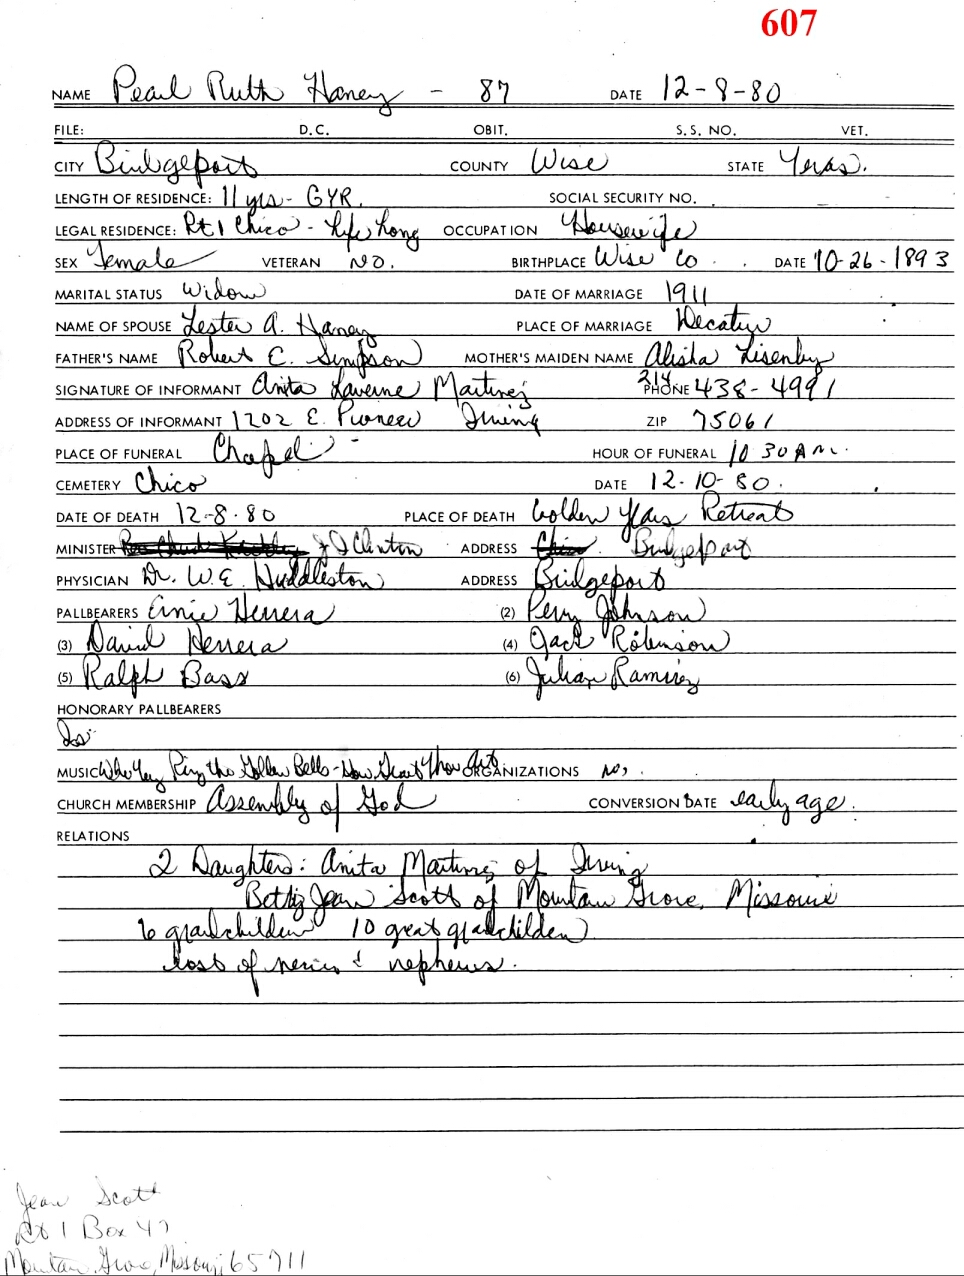 607
NAME Pearl Ruth Haney - 87 DATE 12-8-80
FILE: D.C. OBIT. S.S. NO. VET.
CITY Bridgeport COUNTY Wise STATE Texas.
LENGTH OF RESIDENCE: 11 yrs - GYR. SOCIAL SECURITY NO.
LEGAL RESIDENCE: Rt 1 Chico - Life Long OCCUPATION Housewife
SEX Female VETERAN NO. BIRTHPLACE Wise Co. DATE 10-26-1893
MARITAL STATUS Widow DATE OF MARRIAGE 1911
NAME OF SPOUSE Lester A. Haney PLACE OF MARRIAGE Decatur
FATHER'S NAME Robert E. Simpson MOTHER'S MAIDEN NAME Alisha Lisenby
SIGNATURE OF INFORMANT Anita Laverne Martinez PHONE 214 438-4991
ADDRESS OF INFORMANT 1202 E. Pioneer Irving ZIP 75061
PLACE OF FUNERAL Chapel HOUR OF FUNERAL 10 30 A M.
CEMETERY Chico DATE 12-10-80.
DATE OF DEATH 12-8-80 PLACE OF DEATH Golden Years Retreat
MINISTER J D Clinton ADDRESS Chico. Bridgeport
PHYSICIAN Dr. W.E. Huddleston ADDRESS Bridgeport
PALLBEARERS Ernie Herrera (2) Perry Johnson
(3) David Herrera (4) Jack Robinson
(5) Ralph Bass (6) Julian Ramirez
HONORARY PALLBEARERS
MUSIC When They Ring the Golden Bells - How Great Thou Art ORGANIZATIONS no.
CHURCH MEMBERSHIP Assembly of God CONVERSION DATE early age.
RELATIONS
2 Daughters: Anita Martinez of Irving
Betty Jean Scott of Mountain Grove, Missouri
6 grandchildren 10 great grandchildren
host of nieces & nephews.
Jean Scott
Rt 1 Box 47
Mountain Grove, Missouri 65711